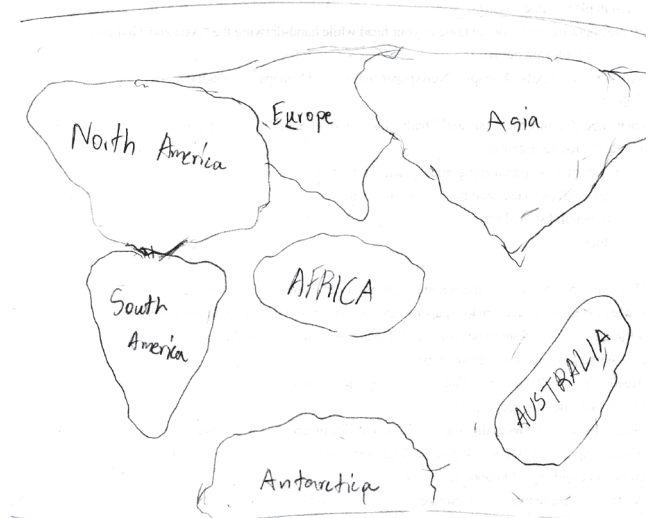 North America
Europe
Asia
South
America
AFRICA
AUSTRALIA
Antarctica